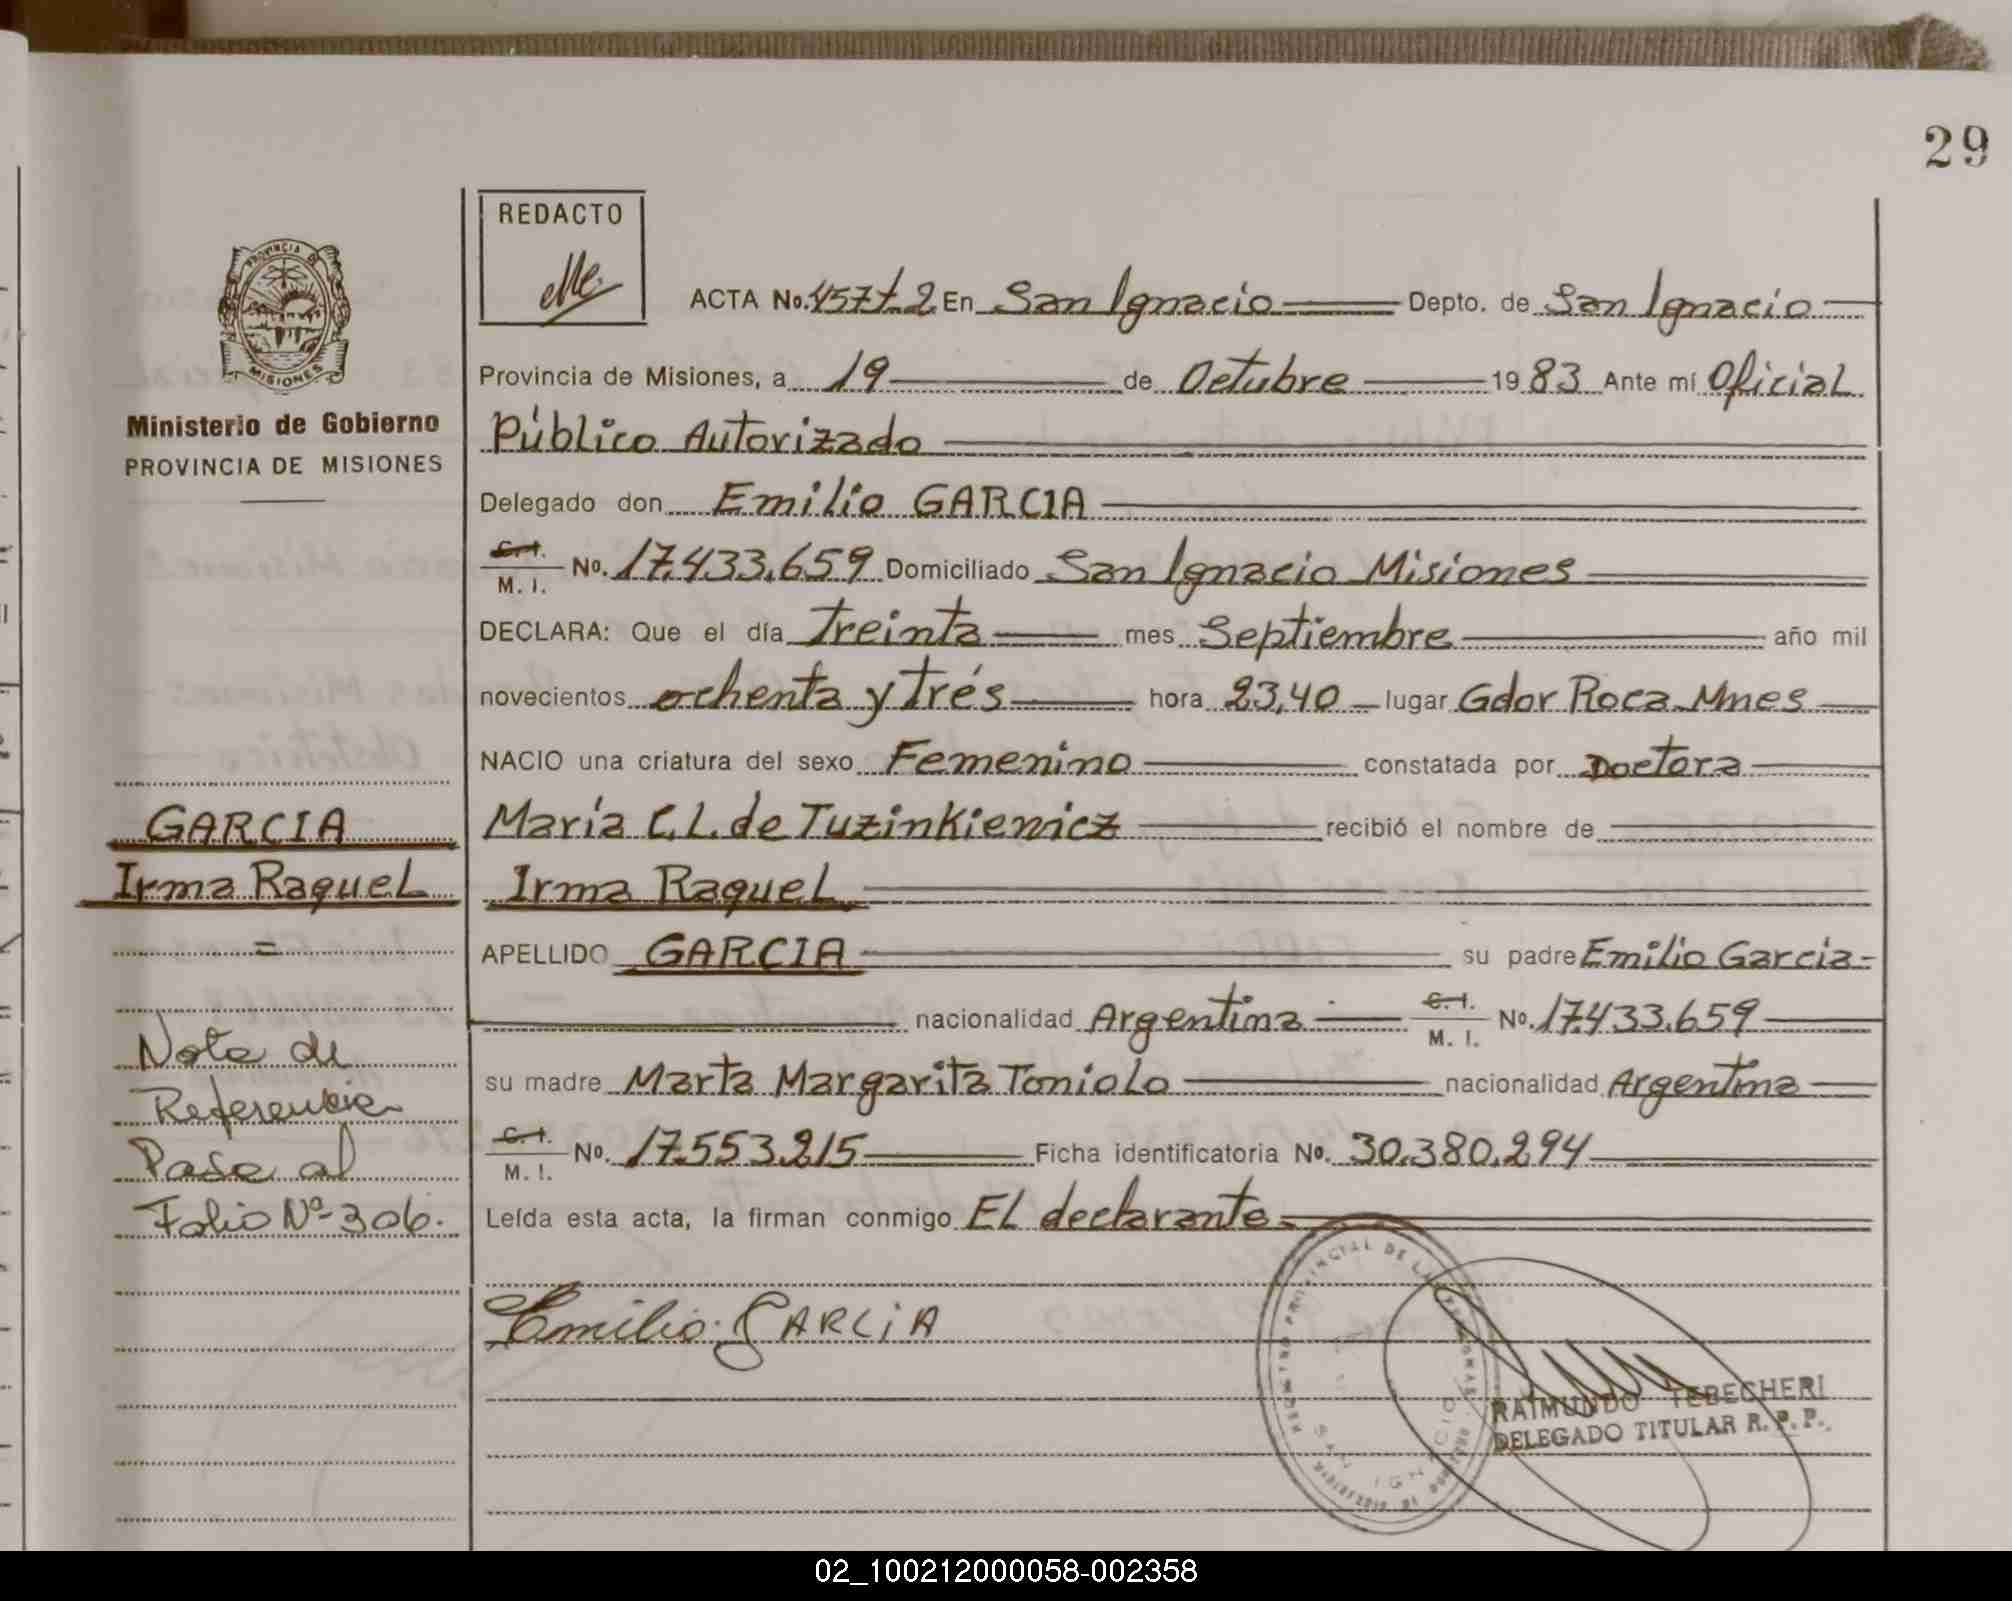 29
REDACTO
PROVINCIA DE
MISIONES
Ministerio de Gobierno
PROVINCIA DE MISIONES
ACTA No. 457 t. 2 En San Ignacio Depto. de San Ignacio
Provincia de Misiones, a 19 de Octubre 1983 Ante mí Oficial
Público Autorizado
Delegado don Emilio GARCIA
C. I.
M. I. No. 17.433.659 Domiciliado San Ignacio Misiones
DECLARA: Que el día treinta mes Septiembre año mil
novecientos ochenta y trés hora 23,40 lugar Gdor Roca Mnes
NACIO una criatura del sexo Femenino constatada por Doctora
María C. L. de Tuzinkiewicz recibió el nombre de
Irma Raquel
APELLIDO GARCIA su padre Emilio Garcia
nacionalidad Argentina C. I.
M. I. No. 17.433.659
su madre Marta Margarita Toniolo nacionalidad Argentina
C. I.
M. I. No. 17.553.215 Ficha identificatoria No. 30.380.294
Leída esta acta, la firman conmigo El declarante
Emilio GARCIA
GARCIA
Irma Raquel
=
Nota de
Referencia
Pase al
Folio Nº 306.
REGISTRO PROVINCIAL DE LAS PERSONAS
SAN IGNACIO
RAIMUNDO TEBECHERI
DELEGADO TITULAR R. P. P.
02_100212000058-002358